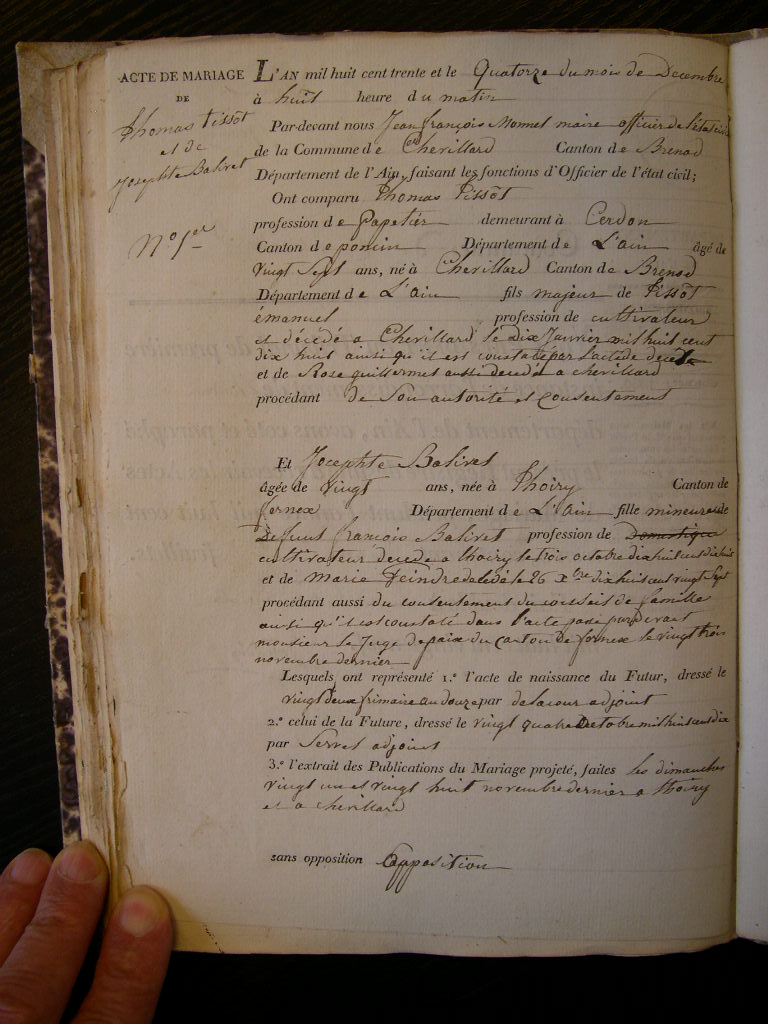 ACTE DE MARIAGE
DE
Thomas tissôt
et de
Josephte Balivet
N° 1er
L'AN mil huit cent trente et le Quatorze du mois de Decembre
à huit heure du matin
Par-devant nous Jean françois Monnet maire officier de l'état civil
de la Commune de Chevillard Canton de Brenod
Département de l'Ain, faisant les fonctions d'Officier de l'état civil;
Ont comparu Thomas Tissôt
profession de Papetier demeurant à Cerdon
Canton de poncin Département de L'ain âgé de
vingt Sept ans, né à Chevillard Canton de Brenod
Département de L'ain fils majeur de Tissôt
émanuel profession de cultivateur
et décédé a Chevillard le dix Janvier mil huit cent
dix huit ainsi qu'il est constaté par l'acte de décès
et de Rose guillermet aussi decedé a chevillard
procédant de Son autorité et consentement
Et Josephte Balivet
âgée de vingt ans, née à Thoiry Canton de
fernex Département de L'ain fille mineure de
Defunt françois Balivet profession de Domestique
cultivateur decede a thoiry le trois octobre dix huit cent dix huit
et de marie decedé le 26 Xbre dix huit cent vingt Sept
procédant aussi du consentement du conseil de famille
ainsi qu'il est constaté dans l'acte passé par devant
monsieur le Juge de paix du canton de fernex le vingt trois
novembre dernier
Lesquels ont représenté 1.° l'acte de naissance du Futur, dressé le
vingt deux frimaire an douze par delacour adjoint
2.° celui de la Future, dressé le vingt quatre Octobre mil huit cent dix
par Servet adjoint
3.° l'extrait des Publications du Mariage projeté, faites les dimanches
vingt un et vingt huit novembre dernier a thoiry
et a chevillard
sans opposition Opposition